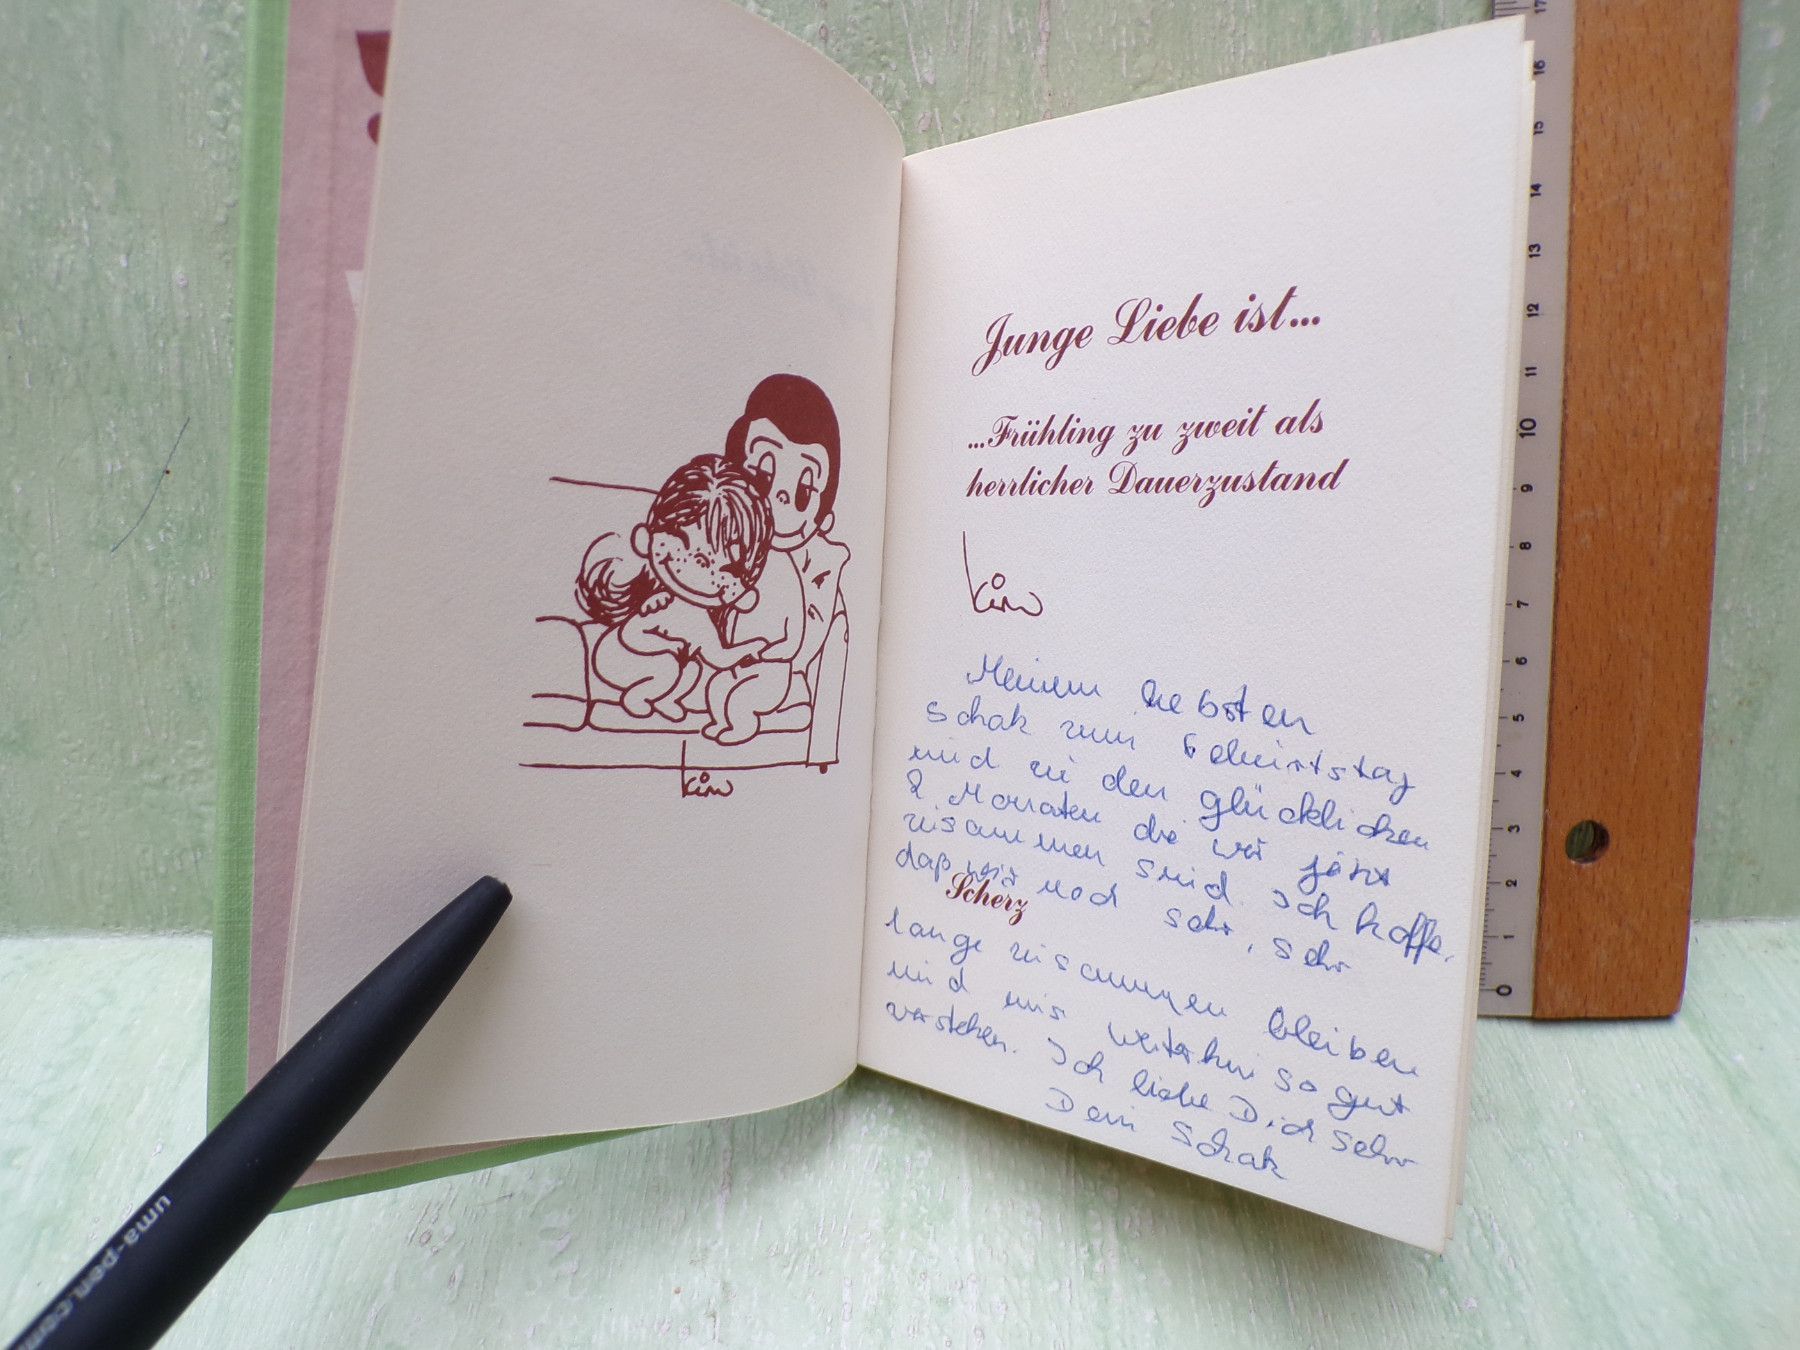 kim
Junge Liebe ist...
...Frühling zu zweit als
herrlicher Dauerzustand
kim
Meinem liebsten
Schak zum Geburtstag
und zu den glücklichen
8 Monaten die wir jetzt
zusammen sind. Ich hoffe,
daß wir noch sehr, sehr
Scherz
lange zusammen bleiben
und uns weiterhin so gut
verstehen. Ich liebe Dich sehr
Dein Schak
uma-pen.com
17
16
15
14
13
12
11
10
9
8
7
6
5
4
3
2
1
0